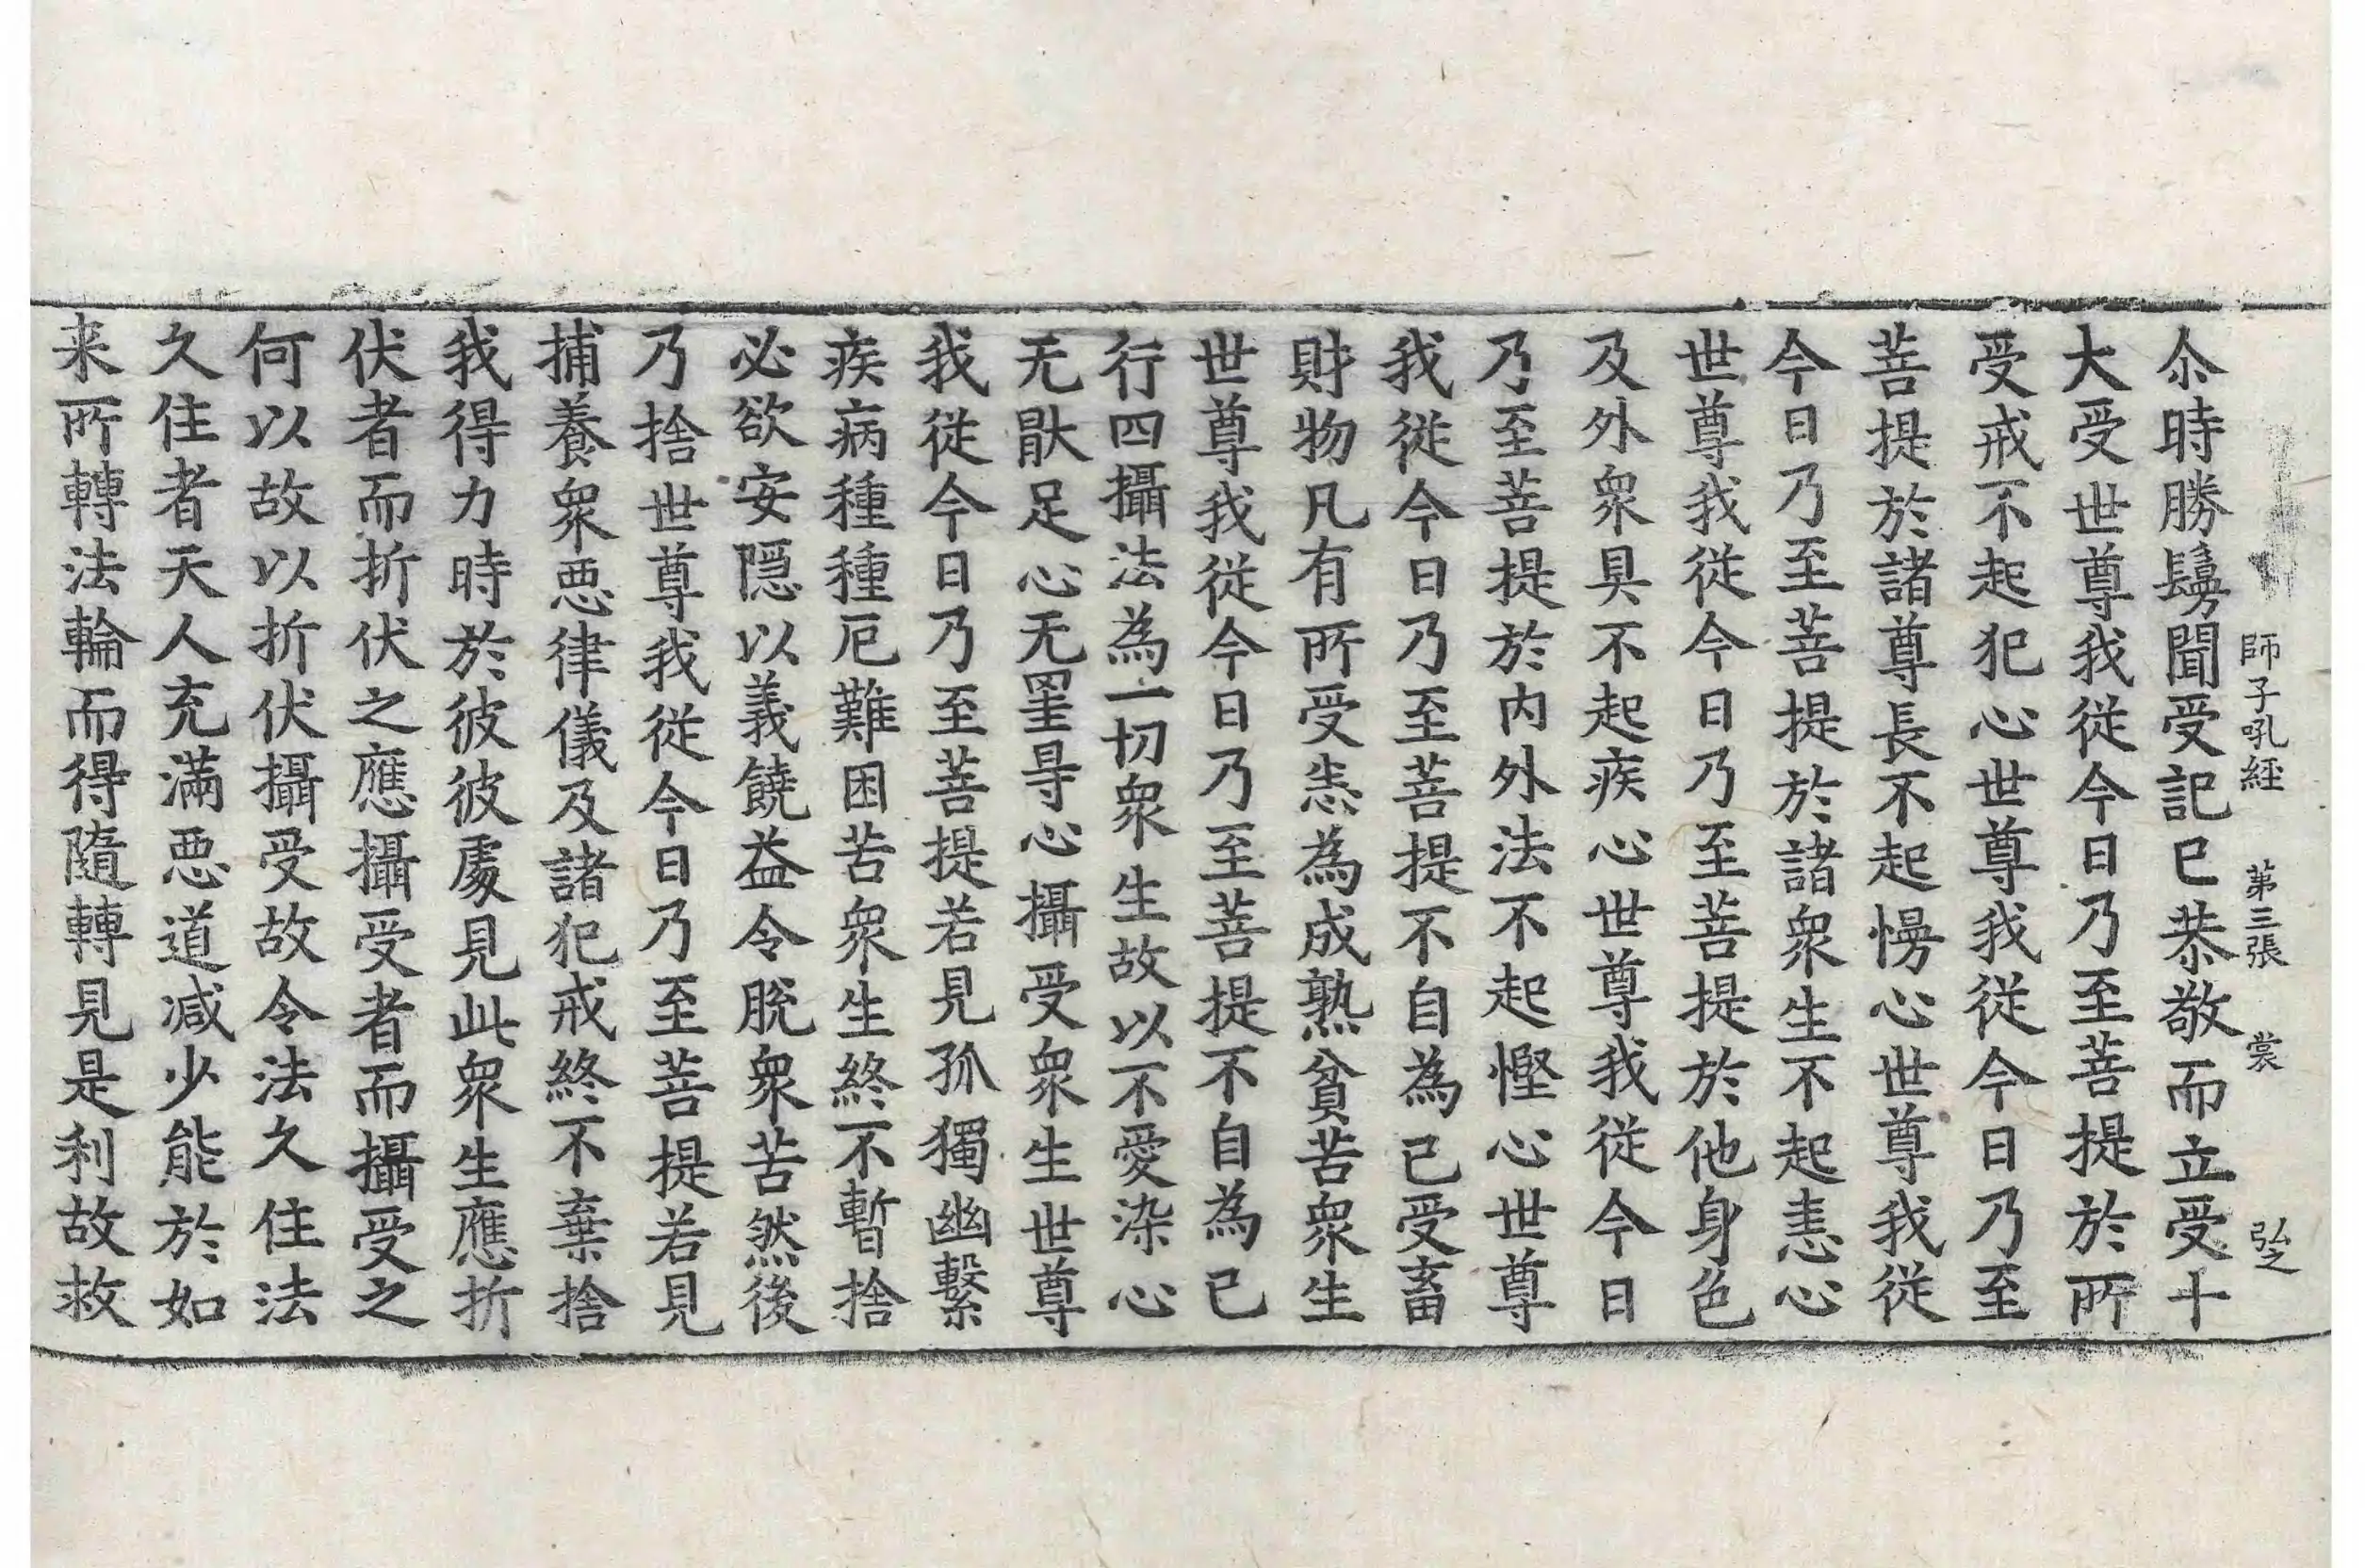 師子吼経 第三張 裳 弘之
尒時勝鬘聞受記已恭敬而立受十
大受世尊我從今日乃至菩提於所
受戒不起犯心世尊我從今日乃至
菩提於諸尊長不起慢心世尊我從
今日乃至菩提於諸衆生不起恚心
世尊我從今日乃至菩提於他身色
及外衆具不起疾心世尊我從今日
乃至菩提於内外法不起慳心世尊
我從今日乃至菩提不自為己受畜
財物凡有所受悉為成熟貧苦衆生
世尊我從今日乃至菩提不自為己
行四攝法為一切衆生故以不愛染心
无猒足心无罣㝵心攝受衆生世尊
我從今日乃至菩提若見孤獨幽繫
疾病種種厄難困苦衆生終不暫捨
必欲安隠以義饒益令脫衆苦然後
乃捨世尊我從今日乃至菩提若見
捕養衆悪律儀及諸犯戒終不棄捨
我得力時於彼彼處見此衆生應折
伏者而折伏之應攝受者而攝受之
何以故以折伏攝受故令法久住法
久住者天人充滿悪道減少能於如
来所轉法輪而得隨轉見是利故救